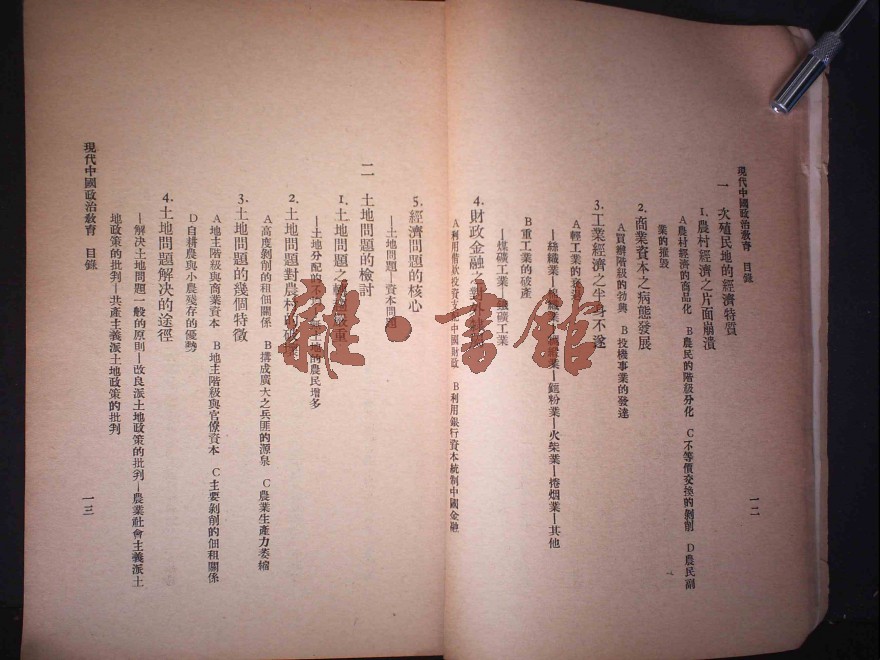 現代中國政治敎育 目錄
一 次殖民地的經濟特質
1.農村經濟之片面崩潰
A農村經濟的商品化 B農民的階級分化 C不等價交換的剝削 D農民副
業的摧毀
2.商業資本之病態發展
A買辦階級的勃興 B投機事業的發達
3.工業經濟之半身不遂
A輕工業的
—絲織業— 麵粉業—火柴業—捲烟業—其他
B重工業的破產
—煤礦工業— 礦工業
4.財政金融之
A利用借欵投資 中國財政 B利用銀行資本統制中國金融
5.經濟問題的核心
—土地問題—資本問題
二 土地問題的檢討
1.土地問題之 嚴重
—土地分配的不 土地的農民增多
2.土地問題對農村的破
A高度剝削的租佃關係 B構成廣大之兵匪的源泉 C農業生產力萎縮
3.土地問題的幾個特徵
A地主階級與商業資本 B地主階級與官僚資本 C主要剝削的佃租關係
D自耕農與小農殘存的優勢
4.土地問題解决的途徑
—解決土地問題一般的原則—改良派土地政策的批判—農業社會主義派土
地政策的批判—共產主義派土地政策的批判
現代中國政治敎育 目錄
一二
一三
雜·書館